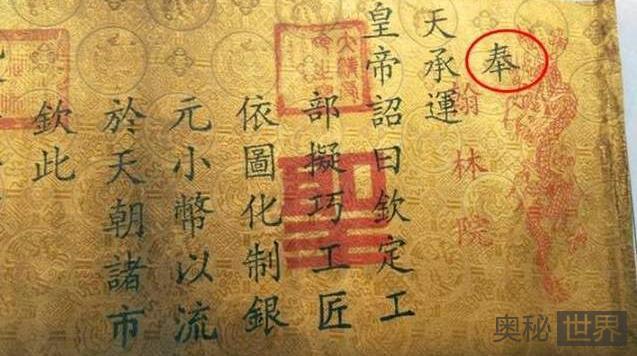 奉
天承運
皇帝詔曰欽定工
部擬巧工匠
依圖化制銀
元小幣以流
於天朝諸市
欽此
翰林院
聖
奥秘世界